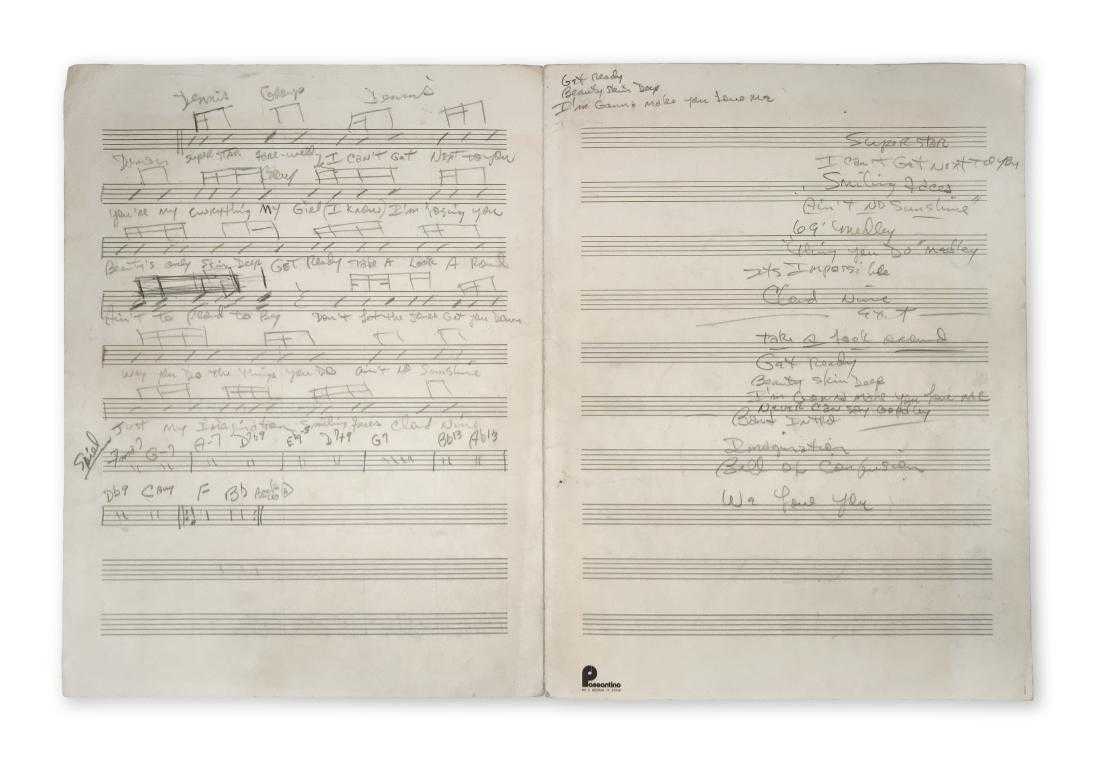 Dennis Group Dennis
Superstar Fare-well I Can't Get Next to you
you're my Everything My Girl (I know) I'm losing you
Beauty's only Skin Deep Get Ready Take A Look A Round
Ain't to Proud to Beg Don't Let the Get you Down
Way you Do the Things you Do ain't No Sunshine
Just My Imagination Smiling faces Cloud Nine
G-7 A-7 D7b9 D7+9 G7 Bb13 Ab13
Db9 F Bb
Get Ready
Beauty Skin Deep
I'm Gonna make you Love me
Superstar
I can't Get Next to you
Smiling Faces
Ain't No Sunshine"
69' medley
"thing you Do" medley
It's Impossible
Cloud Nine
take a look around
Get Ready
Beauty Skin Deep
I'm Gonna make you Love me
Never Can Say Goodby
Band Intro
Imagination
Ball of Confusion
We Love you
Passantino